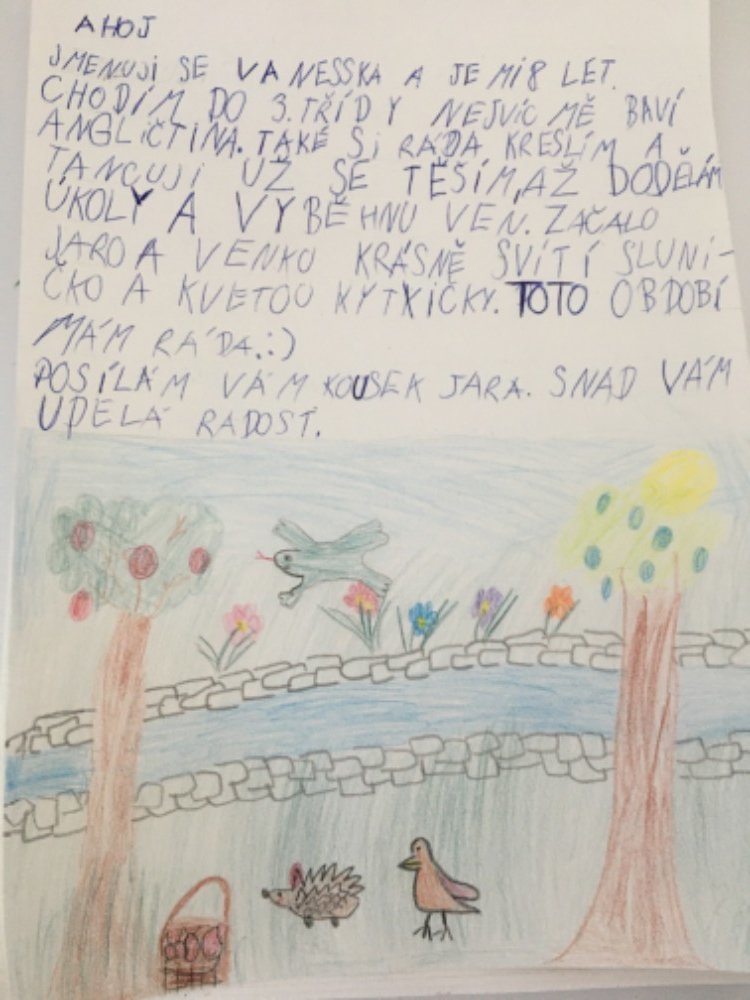 AHOJ
JMENUJI SE VANESSKA A JE MI 8 LET.
CHODÍM DO 3. TŘÍDY NEJVÍC MĚ BAVÍ
ANGLIČTINA. TAKÉ SI RÁDA KRESLÍM A
TANCUJI UŽ SE TĚŠÍM, AŽ DODĚLÁM
ÚKOLY A VYBĚHNU VEN. ZAČALO
JARO A VENKU KRÁSNĚ SVÍTÍ SLUNÍ-
ČKO A KVETOU KYTXIČKY. TOTO OBDOBÍ
MÁM RÁDA.:)
POSÍLÁM VÁM KOUSEK JARA. SNAD VÁM
UDELÁ RADOST.